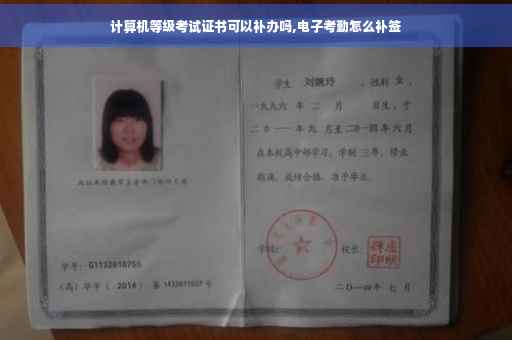 计算机等级考试证书可以补办吗,电子考勤怎么补签
学生 刘婉玲 ,性别 女 ,
一九九六 年 二 月 日生,于
二〇一一年九 月至二〇一四年六月
在本校高中部学习,学制 三年,修业
期满,成绩合格,准予毕业。
学号: G1132010755
(高)毕字( 2014 )第 1432011027 号
学校: 校长:
二〇一四年 七 月